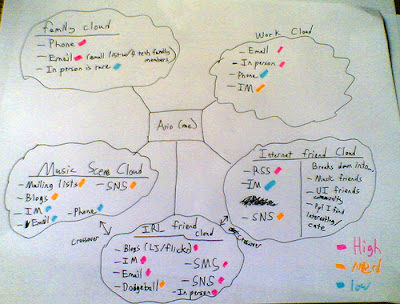 family cloud
- Phone
- Email (email listserv/4 tech family members)
- In person is rare
Work Cloud
- Email
- In person
- Phone
- IM
Ario (me)
Music Scene Cloud
- Mailing lists
- SNS
- Blogs
- IM
- Phone
- Email
Internet friend Cloud
- RSS
- IM
- SNS
Breaks down into
- Music friends
- UI friends
community
- Ppl I find
interesting/
cute
crossover
crossover
IRL friend
cloud
- Blogs (LJ/flickr)
- IM
- SMS
- Email
- SNS
- Dodgeball
- In person
High
Med
low